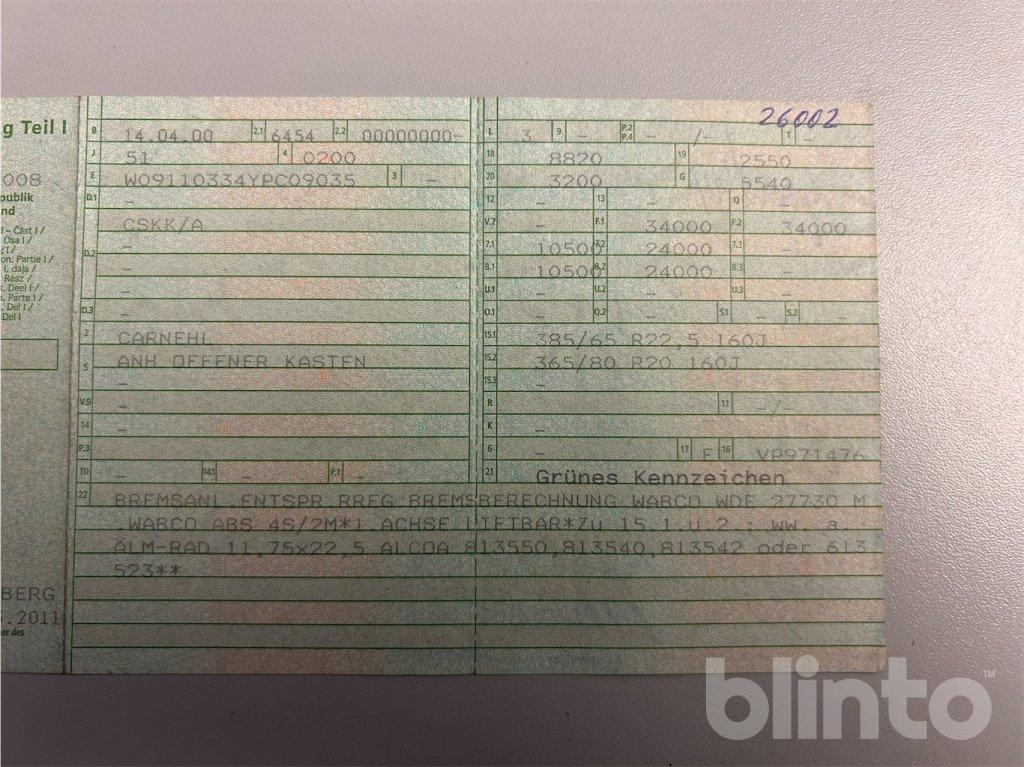 g Teil I
008
publik
nd
l – Část I /
Osa I /
I /
on. Partie I /
I. daļa /
Rész /
. Deel I /
. Parte I /
. Del I /
Del I
BERG
.2011
er des
26002
B 14.04.00 2.1 6454 2.2 00000000-
J 51 4 0200
E W09110334YPC09035 3 –
D.1 –
CSKK/A
D.2 –
–
–
D.3 –
2 CARNEHL
5 ANH OFFENER KASTEN
–
V.9 –
14 –
P.3
10 – 14.1 – P.1 –
L 3 9 – P.2 P.4 – /– T –
18 8820 19 2550
20 3200 G 5540
12 – 13 – Q –
V.7 – F.1 34000 F.2 34000
7.1 10500 7.2 24000 7.3 –
8.1 10500 8.2 24000 8.3 –
U.1 – U.2 – U.3 –
O.1 – O.2 – S.1 – S.2 –
15.1 385/65 R22,5 160J
15.2 365/80 R20 160J
15.3 –
R – 11 –/–
K –
6 – 17 E 16 VP971476
21 Grünes Kennzeichen
22 BREMSANL ENTSPR RREG BREMSBERECHNUNG WABCO WDE 27730 M
.WABCO ABS 4S/2M*1.ACHSE LIFTBAR*Zu 15.1 u.2 : ww. a.
ALM-RAD 11,75x22,5 ALCOA 813550,813540,813542 oder 613
523**
blinto™